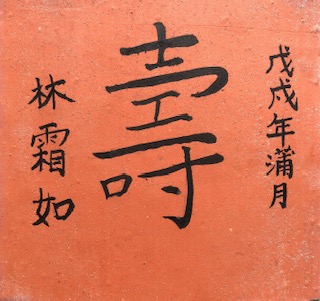 戊戌年蒲月
壽
林霜如